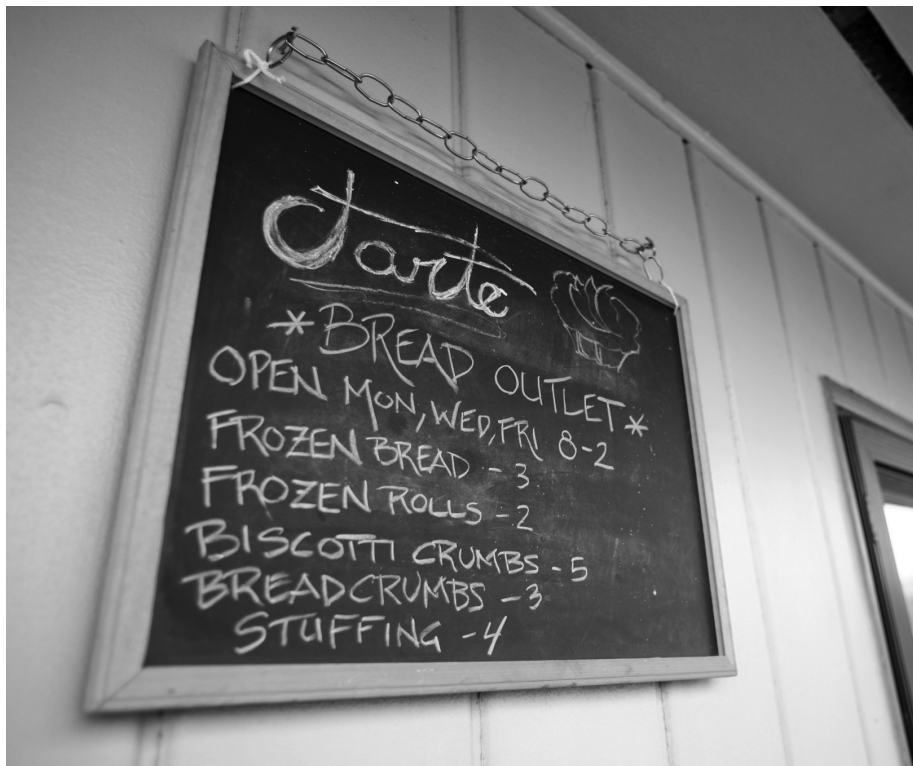 Tarte
*BREAD OUTLET*
OPEN MON, WED, FRI 8-2
FROZEN BREAD - 3
FROZEN ROLLS - 2
BISCOTTI CRUMBS - 5
BREADCRUMBS - 3
STUFFING - 4